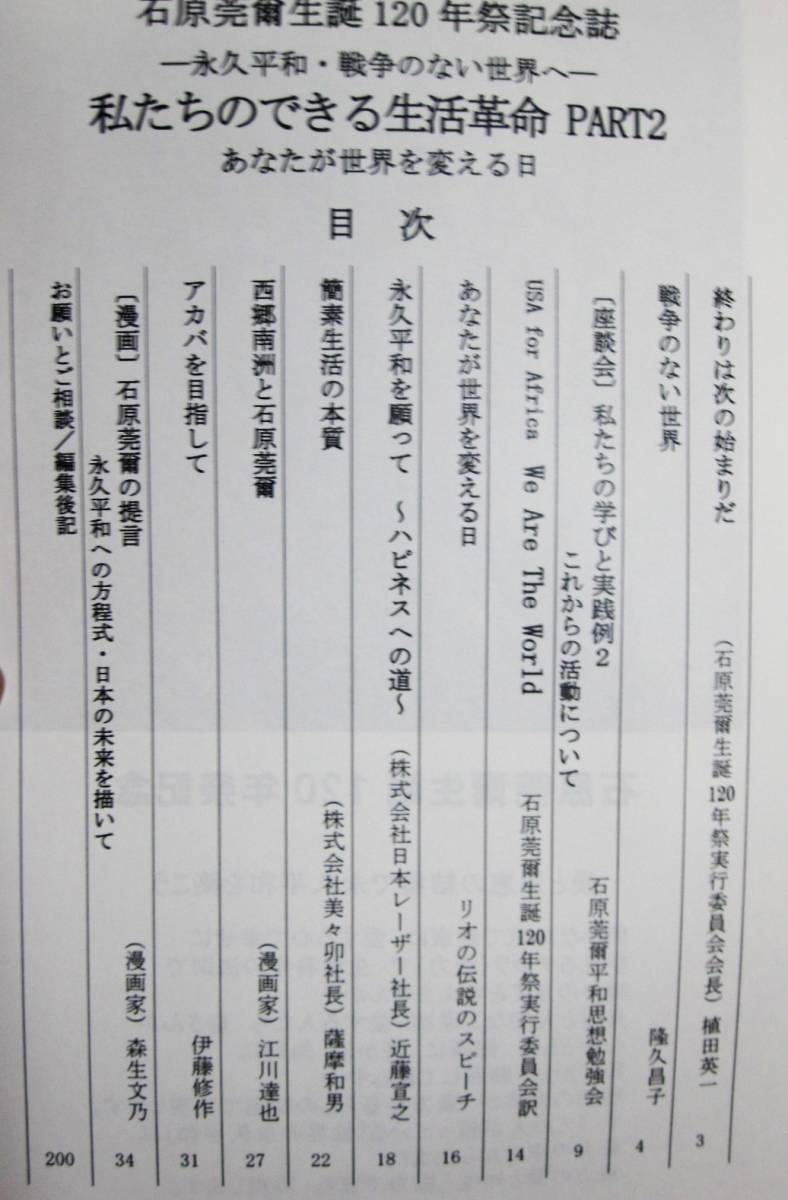 石原莞爾生誕120年祭記念誌
―永久平和・戦争のない世界へ―
私たちのできる生活革命 PART2
あなたが世界を変える日
目 次
終わりは次の始まりだ (石原莞爾生誕120年祭実行委員会会長) 植田英一 3
戦争のない世界 隆久昌子 4
〔座談会〕私たちの学びと実践例2
これからの活動について 石原莞爾平和思想勉強会 9
USA for Africa We Are The World 石原莞爾生誕120年祭実行委員会訳 14
あなたが世界を変える日 リオの伝説のスピーチ 16
永久平和を願って ～ハピネスへの道～ (株式会社日本レーザー社長) 近藤宣之 18
簡素生活の本質 (株式会社美々卯社長) 薩摩和男 22
西郷南洲と石原莞爾 (漫画家) 江川達也 27
アカバを目指して 伊藤修作 31
〔漫画〕石原莞爾の提言
永久平和への方程式・日本の未来を描いて (漫画家) 森生文乃 34
お願いとご相談／編集後記 200
石原莞爾生誕120年祭記念